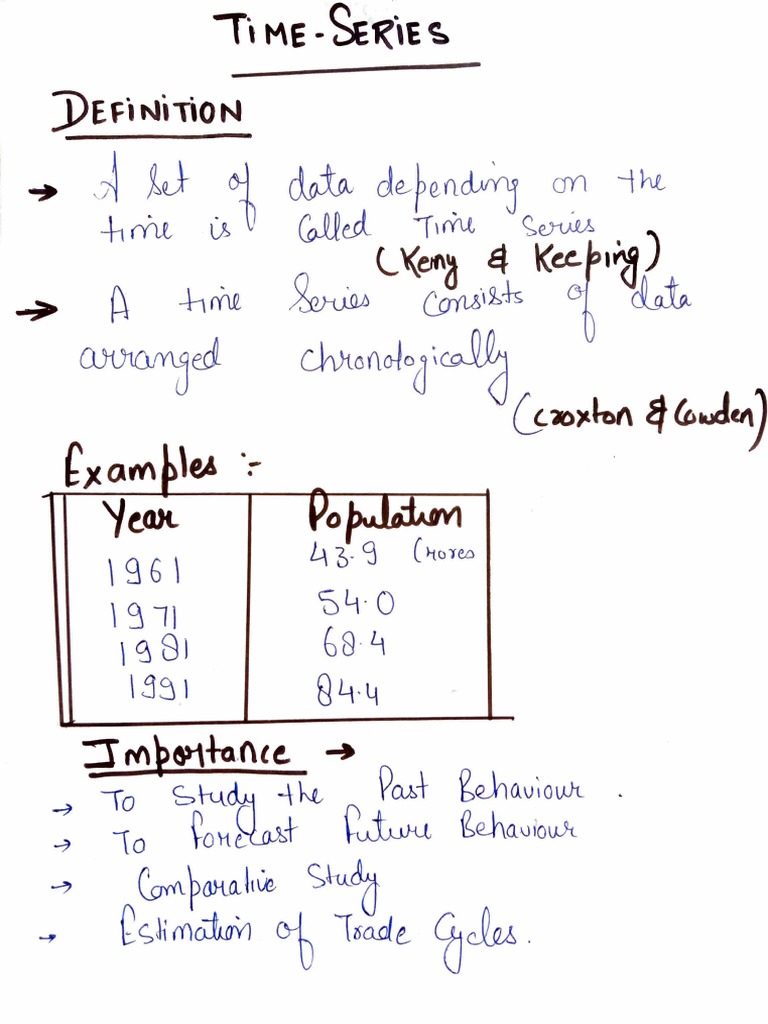 TIME-SERIES
DEFINITION
→ A set of data depending on the
time is called Time Series
(Keny & Keeping)
→ A time Series consists of data
arranged chronologically
(Croxton & Cowden)
Examples :-
Year Population
1961 43.9 Crores
1971 54.0
1981 68.4
1991 84.4
Importance →
→ To Study the Past Behaviour .
→ To Forecast Future Behaviour
→ Comparative Study
→ Estimation of Trade Cycles.